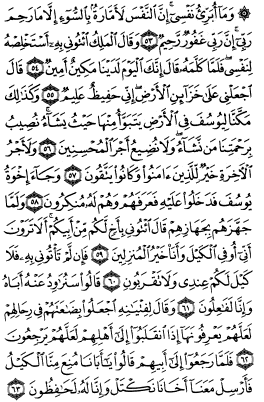 ۞ وَمَا أُبَرِّئُ نَفْسِي ۚ إِنَّ النَّفْسَ لَأَمَّارَةٌ بِالسُّوءِ إِلَّا مَا رَحِمَ
رَبِّي ۚ إِنَّ رَبِّي غَفُورٌ رَّحِيمٌ ٥٣ وَقَالَ الْمَلِكُ ائْتُونِي بِهِ أَسْتَخْلِصْهُ
لِنَفْسِي ۖ فَلَمَّا كَلَّمَهُ قَالَ إِنَّكَ الْيَوْمَ لَدَيْنَا مَكِينٌ أَمِينٌ ٥٤ قَالَ
اجْعَلْنِي عَلَىٰ خَزَائِنِ الْأَرْضِ ۖ إِنِّي حَفِيظٌ عَلِيمٌ ٥٥ وَكَذَٰلِكَ
مَكَّنَّا لِيُوسُفَ فِي الْأَرْضِ يَتَبَوَّأُ مِنْهَا حَيْثُ يَشَاءُ ۚ نُصِيبُ
بِرَحْمَتِنَا مَن نَّشَاءُ ۖ وَلَا نُضِيعُ أَجْرَ الْمُحْسِنِينَ ٥٦ وَلَأَجْرُ
الْآخِرَةِ خَيْرٌ لِّلَّذِينَ آمَنُوا وَكَانُوا يَتَّقُونَ ٥٧ وَجَاءَ إِخْوَةُ
يُوسُفَ فَدَخَلُوا عَلَيْهِ فَعَرَفَهُمْ وَهُمْ لَهُ مُنكِرُونَ ٥٨ وَلَمَّا
جَهَّزَهُم بِجَهَازِهِمْ قَالَ ائْتُونِي بِأَخٍ لَّكُم مِّنْ أَبِيكُمْ ۚ أَلَا تَرَوْنَ
أَنِّي أُوفِي الْكَيْلَ وَأَنَا خَيْرُ الْمُنزِلِينَ ٥٩ فَإِن لَّمْ تَأْتُونِي بِهِ فَلَا
كَيْلَ لَكُمْ عِندِي وَلَا تَقْرَبُونِ ٦٠ قَالُوا سَنُرَاوِدُ عَنْهُ أَبَاهُ
وَإِنَّا لَفَاعِلُونَ ٦١ وَقَالَ لِفِتْيَانِهِ اجْعَلُوا بِضَاعَتَهُمْ فِي رِحَالِهِمْ
لَعَلَّهُمْ يَعْرِفُونَهَا إِذَا انقَلَبُوا إِلَىٰ أَهْلِهِمْ لَعَلَّهُمْ يَرْجِعُونَ
٦٢ فَلَمَّا رَجَعُوا إِلَىٰ أَبِيهِمْ قَالُوا يَا أَبَانَا مُنِعَ مِنَّا الْكَيْلُ
فَأَرْسِلْ مَعَنَا أَخَانَا نَكْتَلْ وَإِنَّا لَهُ لَحَافِظُونَ ٦٣